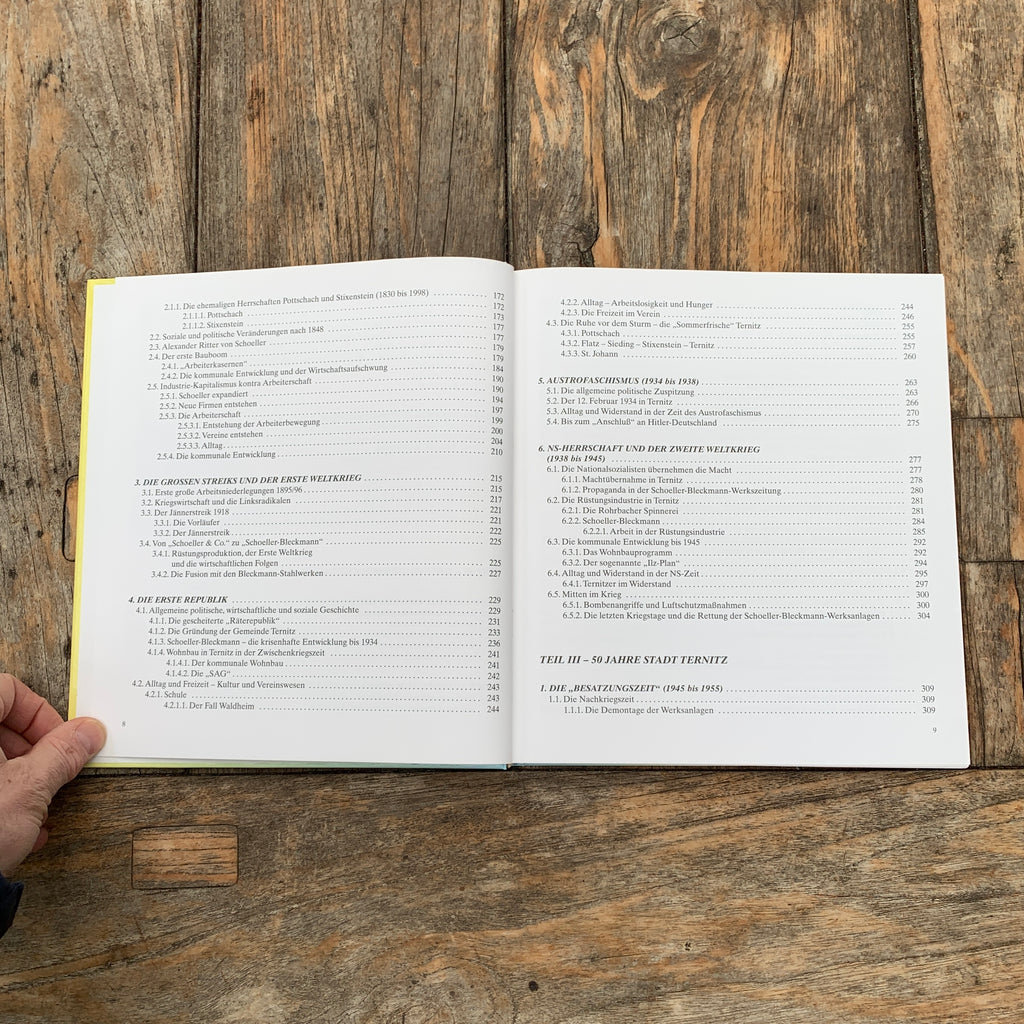 2.1.1. Die ehemaligen Herrschaften Pottschach und Stixenstein (1830 bis 1998) . . . . . . . . . . . 172
2.1.1.1. Pottschach . . . . . . . . . . . 172
2.1.1.2. Stixenstein . . . . . . . . . . . 173
2.2. Soziale und politische Veränderungen nach 1848 . . . . . . . . . . . 177
2.3. Alexander Ritter von Schoeller . . . . . . . . . . . 177
2.4. Der erste Bauboom . . . . . . . . . . . 179
2.4.1. „Arbeiterkasernen“ . . . . . . . . . . . 179
2.4.2. Die kommunale Entwicklung und der Wirtschaftsaufschwung . . . . . . . . . . . 184
2.5. Industrie-Kapitalismus kontra Arbeiterschaft . . . . . . . . . . . 190
2.5.1. Schoeller expandiert . . . . . . . . . . . 190
2.5.2. Neue Firmen entstehen . . . . . . . . . . . 194
2.5.3. Die Arbeiterschaft . . . . . . . . . . . 197
2.5.3.1. Entstehung der Arbeiterbewegung . . . . . . . . . . . 199
2.5.3.2. Vereine entstehen . . . . . . . . . . . 200
2.5.3.3. Alltag . . . . . . . . . . . 204
2.5.4. Die kommunale Entwicklung . . . . . . . . . . . 210
3. DIE GROSSEN STREIKS UND DER ERSTE WELTKRIEG . . . . . . . . . . . 215
3.1. Erste große Arbeitsniederlegungen 1895/96 . . . . . . . . . . . 215
3.2. Kriegswirtschaft und die Linksradikalen . . . . . . . . . . . 217
3.3. Der Jännerstreik 1918 . . . . . . . . . . . 221
3.3.1. Die Vorläufer . . . . . . . . . . . 221
3.3.2. Der Jännerstreik . . . . . . . . . . . 222
3.4. Von „Schoeller & Co.“ zu „Schoeller-Bleckmann“ . . . . . . . . . . . 225
3.4.1. Rüstungsproduktion, der Erste Weltkrieg
und die wirtschaftlichen Folgen . . . . . . . . . . . 225
3.4.2. Die Fusion mit den Bleckmann-Stahlwerken . . . . . . . . . . . 227
4. DIE ERSTE REPUBLIK . . . . . . . . . . . 229
4.1. Allgemeine politische, wirtschaftliche und soziale Geschichte . . . . . . . . . . . 229
4.1.1. Die gescheiterte „Räterepublik“ . . . . . . . . . . . 231
4.1.2. Die Gründung der Gemeinde Ternitz . . . . . . . . . . . 233
4.1.3. Schoeller-Bleckmann – die krisenhafte Entwicklung bis 1934 . . . . . . . . . . . 236
4.1.4. Wohnbau in Ternitz in der Zwischenkriegszeit . . . . . . . . . . . 241
4.1.4.1. Der kommunale Wohnbau . . . . . . . . . . . 241
4.1.4.2. Die „SAG“ . . . . . . . . . . . 242
4.2. Alltag und Freizeit – Kultur und Vereinswesen . . . . . . . . . . . 243
4.2.1. Schule . . . . . . . . . . . 243
4.2.1.1. Der Fall Waldheim . . . . . . . . . . . 244
8
4.2.2. Alltag – Arbeitslosigkeit und Hunger . . . . . . . . . . . 244
4.2.3. Die Freizeit im Verein . . . . . . . . . . . 246
4.3. Die Ruhe vor dem Sturm – die „Sommerfrische“ Ternitz . . . . . . . . . . . 255
4.3.1. Pottschach . . . . . . . . . . . 255
4.3.2. Flatz – Sieding – Stixenstein – Ternitz . . . . . . . . . . . 257
4.3.3. St. Johann . . . . . . . . . . . 260
5. AUSTROFASCHISMUS (1934 bis 1938) . . . . . . . . . . . 263
5.1. Die allgemeine politische Zuspitzung . . . . . . . . . . . 263
5.2. Der 12. Februar 1934 in Ternitz . . . . . . . . . . . 266
5.3. Alltag und Widerstand in der Zeit des Austrofaschismus . . . . . . . . . . . 270
5.4. Bis zum „Anschluß“ an Hitler-Deutschland . . . . . . . . . . . 275
6. NS-HERRSCHAFT UND DER ZWEITE WELTKRIEG
(1938 bis 1945) . . . . . . . . . . . 277
6.1. Die Nationalsozialisten übernehmen die Macht . . . . . . . . . . . 277
6.1.1. Machtübernahme in Ternitz . . . . . . . . . . . 278
6.1.2. Propaganda in der Schoeller-Bleckmann-Werkszeitung . . . . . . . . . . . 280
6.2. Die Rüstungsindustrie in Ternitz . . . . . . . . . . . 281
6.2.1. Die Rohrbacher Spinnerei . . . . . . . . . . . 281
6.2.2. Schoeller-Bleckmann . . . . . . . . . . . 284
6.2.2.1. Arbeit in der Rüstungsindustrie . . . . . . . . . . . 285
6.3. Die kommunale Entwicklung bis 1945 . . . . . . . . . . . 292
6.3.1. Das Wohnbauprogramm . . . . . . . . . . . 292
6.3.2. Der sogenannte „Ilz-Plan“ . . . . . . . . . . . 294
6.4. Alltag und Widerstand in der NS-Zeit . . . . . . . . . . . 295
6.4.1. Ternitzer im Widerstand . . . . . . . . . . . 297
6.5. Mitten im Krieg . . . . . . . . . . . 300
6.5.1. Bombenangriffe und Luftschutzmaßnahmen . . . . . . . . . . . 300
6.5.2. Die letzten Kriegstage und die Rettung der Schoeller-Bleckmann-Werksanlagen . . . . . . . . . . . 304
TEIL III – 50 JAHRE STADT TERNITZ
1. DIE „BESATZUNGSZEIT“ (1945 bis 1955) . . . . . . . . . . . 309
1.1. Die Nachkriegszeit . . . . . . . . . . . 309
1.1.1. Die Demontage der Werksanlagen . . . . . . . . . . . 309
9